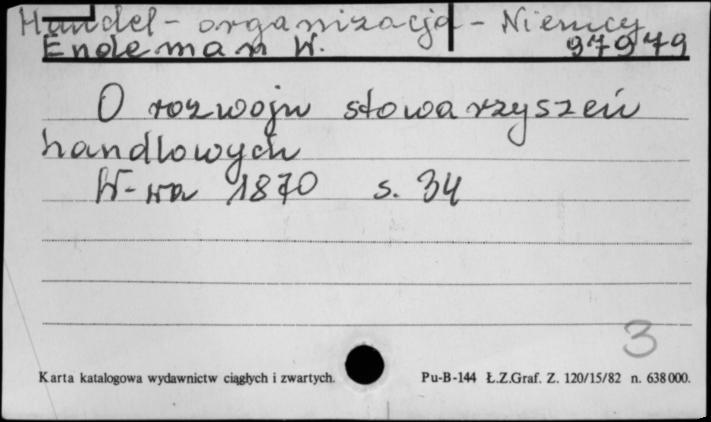 Handel - organizacja - Niemcy
Endeman W. 97979
O rozwoju stowarzyszeń
handlowych
W-wa 1870 s. 34
3
Karta katalogowa wydawnictw ciągłych i zwartych. Pu-B-144 Ł.Z.Graf. Z. 120/15/82 n. 638000.